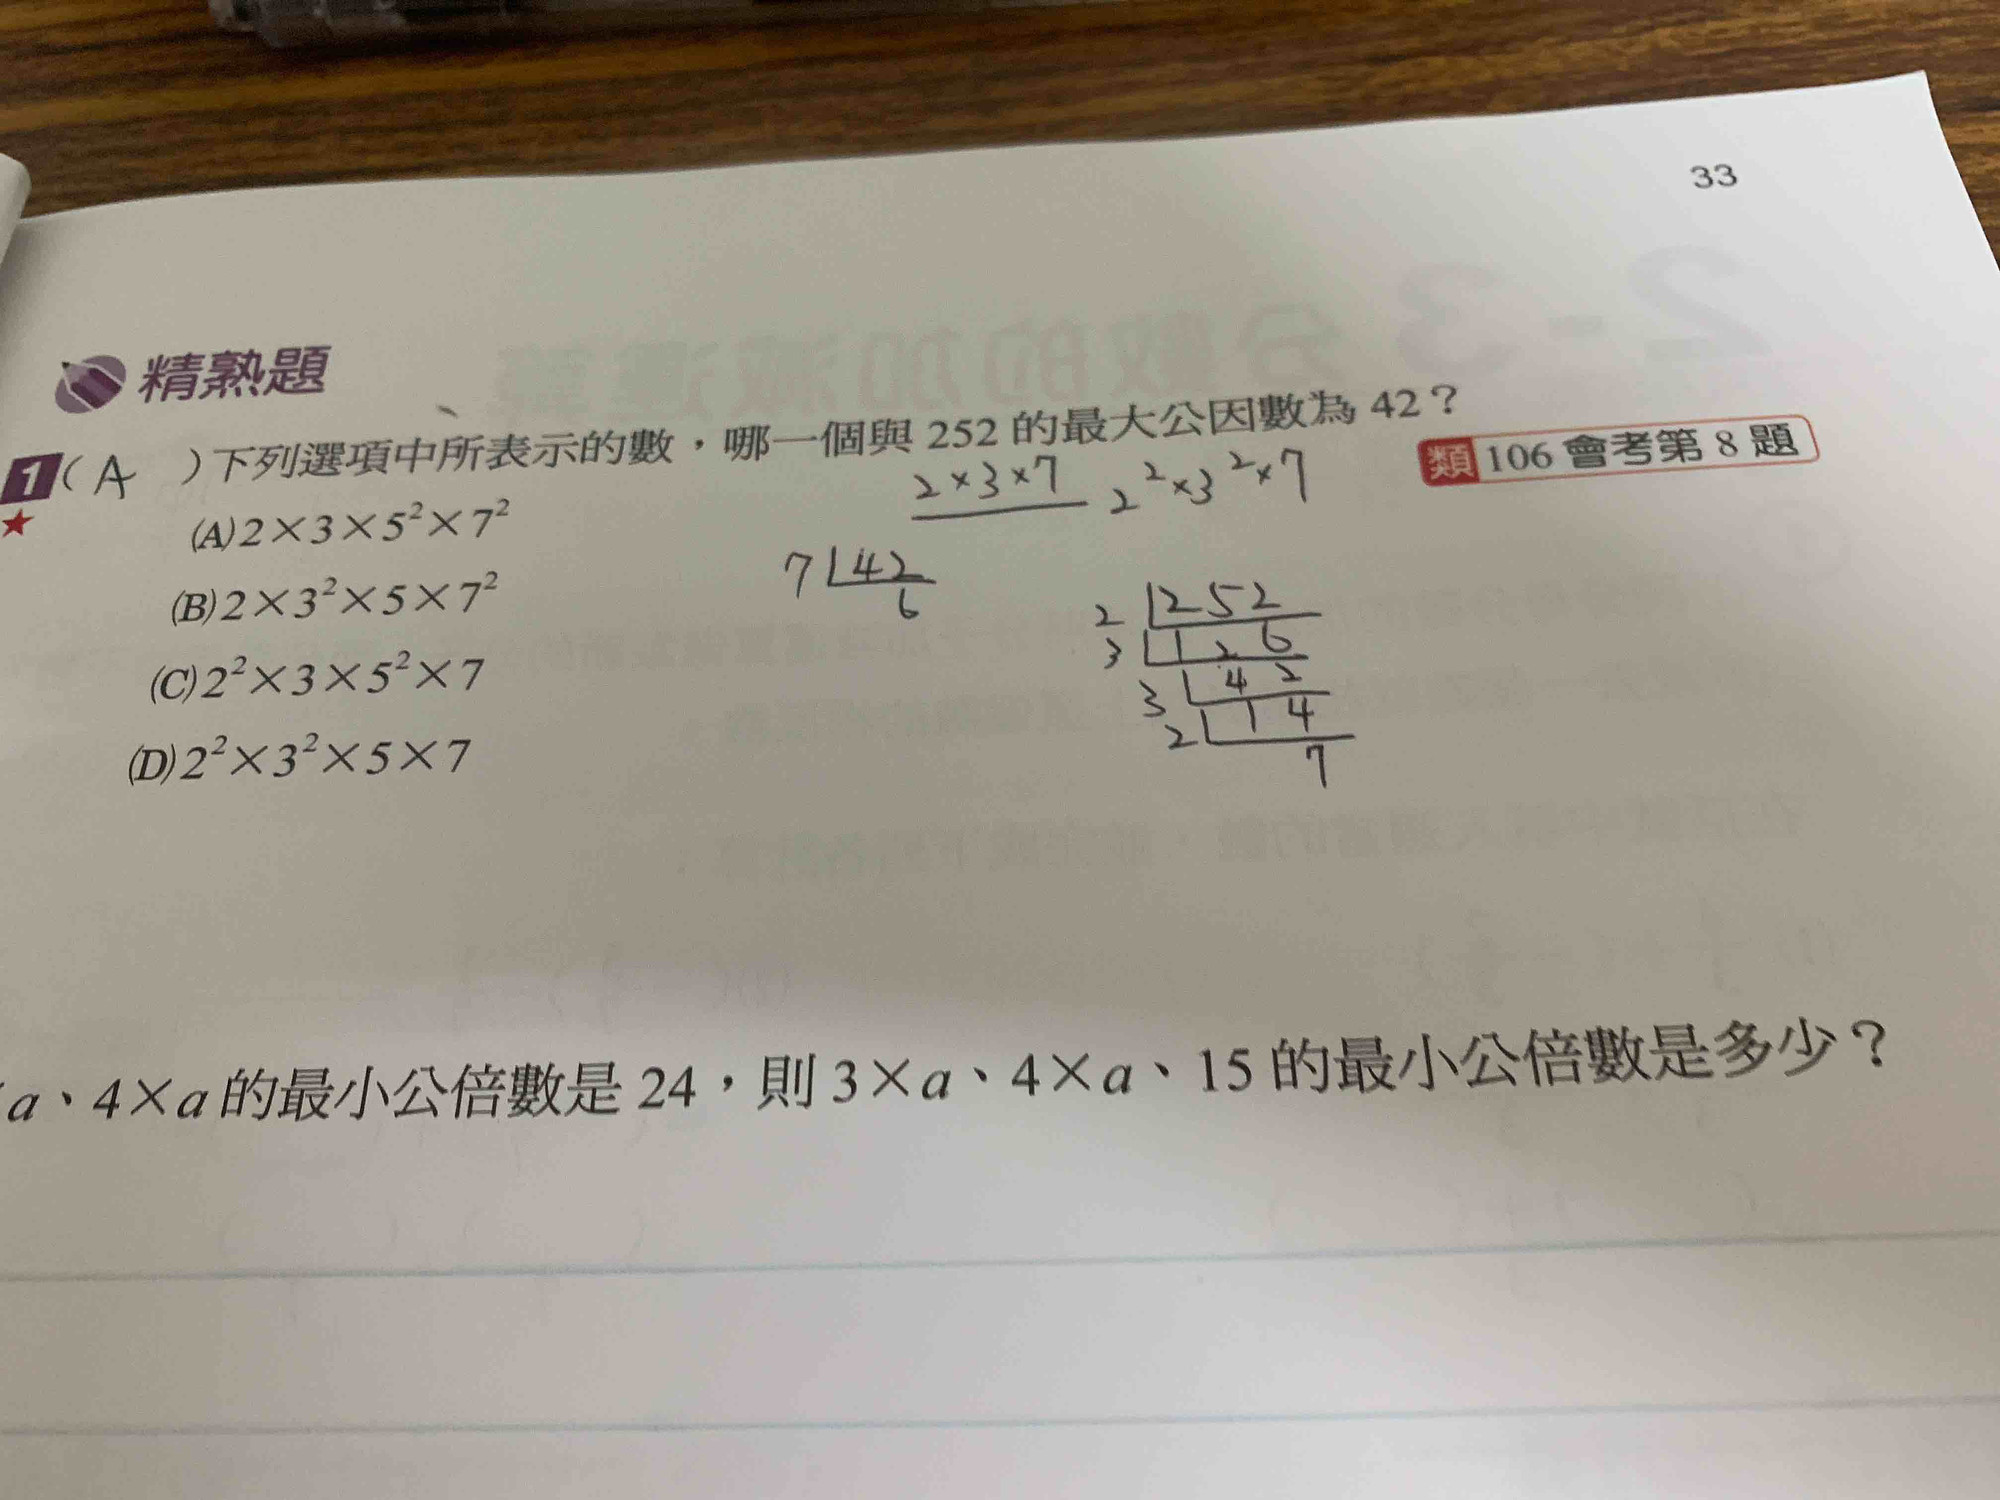 33
精熟題
1 ( A ) 下列選項中所表示的數，哪一個與 252 的最大公因數為 42？
類 106 會考第 8 題
2×3×7 2²×3²×7
(A) 2×3×5²×7²
(B) 2×3²×5×7²
(C) 2²×3×5²×7
(D) 2²×3²×5×7
7 42
6
2 252
3 126
3 42
2 14
7
a、4×a 的最小公倍數是 24，則 3×a、4×a、15 的最小公倍數是多少？